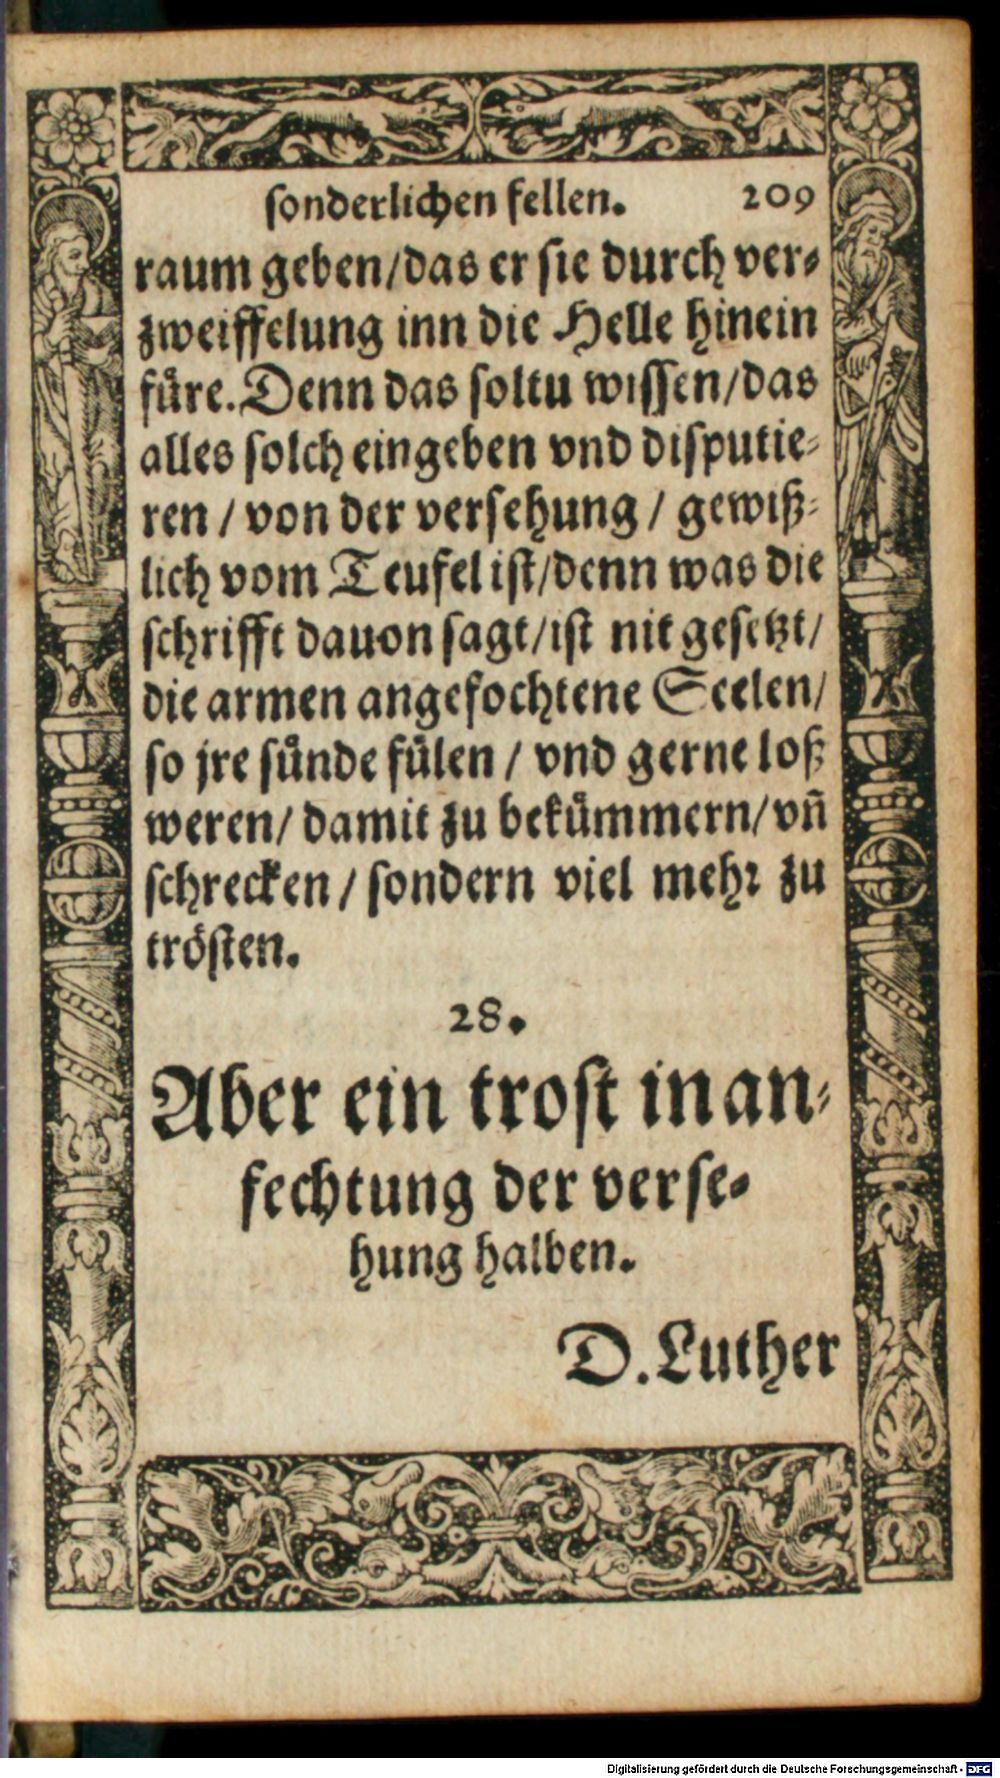 sonderlichen fellen. 209
raum geben/das er sie durch ver-
zweiffelung inn die Helle hinein
fuͤre. Denn das soltu wissen/das
alles solch eingeben vnd disputie-
ren / von der versehung / gewiß-
lich vom Teufel ist/denn was die
schrifft dauon sagt/ist nit gesetzt/
die armen angefochtene Seelen/
so jre suͤnde fuͤlen / vnd gerne loß
weren/ damit zu bekuͤmmern/vn̄
schrecken / sondern viel mehr zu
troͤsten.
28.
Aber ein trost in an-
fechtung der verse-
hung halben.
D. Luther
Digitalisierung gefördert durch die Deutsche Forschungsgemeinschaft - DFG